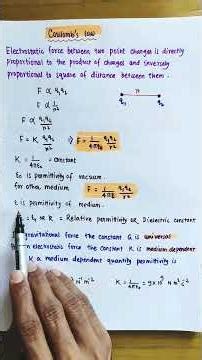 Coulomb's law
Electrostatic force between two point charges is directly
proportional to the product of charges and inversely
proportional to square of distance between them.
F ∝ q₁q₂
F ∝ 1/r²
F ∝ q₁q₂/r²
F = K q₁q₂/r² ⇒ F = 1/4πε₀ q₁q₂/r²
r
q₁ q₂
K = 1/4πε₀ = constant
ε₀ is permittivity of vacuum
for other medium F = 1/4πε q₁q₂/r²
ε is permittivity of medium.
= εᵣ or K = Relative permittivity or Dielectric constant
gravitational force the constant G is universal
electrostatic force the constant K is medium dependent
K a medium dependent quantity permittivity is
N⁻¹ m⁻² K = 1/4πε₀ = 9×10⁹ N m² C⁻²